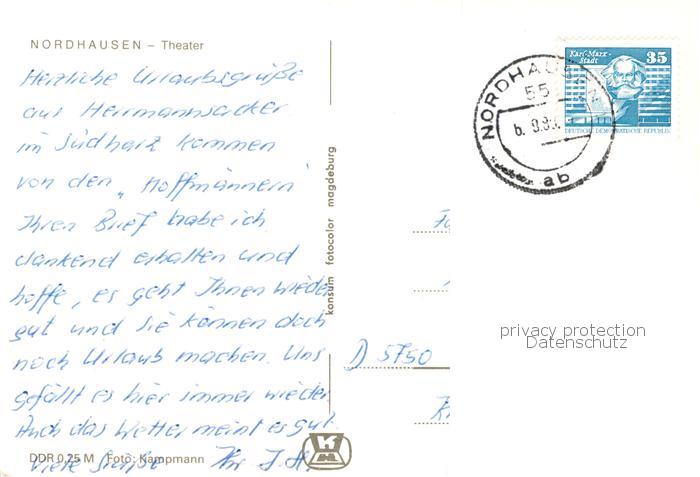 NORDHAUSEN – Theater
Herzliche Urlaubsgrüße
aus Herrmannsacker
im Südharz kommen
von den „Hoffmännern"
Ihren Brief habe ich
dankend erhalten und
hoffe, es geht Ihnen wieder
gut und Sie können doch
noch Urlaub machen. Uns
gefällt es hier immer wieder.
Auch das Wetter meint es gut.
Viele Grüße Ihr J. H.
DDR 0,25 M Foto: Kampmann
konsum fotocolor magdeburg
NORDHAUSEN
55
ab
Karl-Marx-Stadt
35
DEUTSCHE DEMOKRATISCHE REPUBLIK
D 5750
privacy protection
Datenschutz